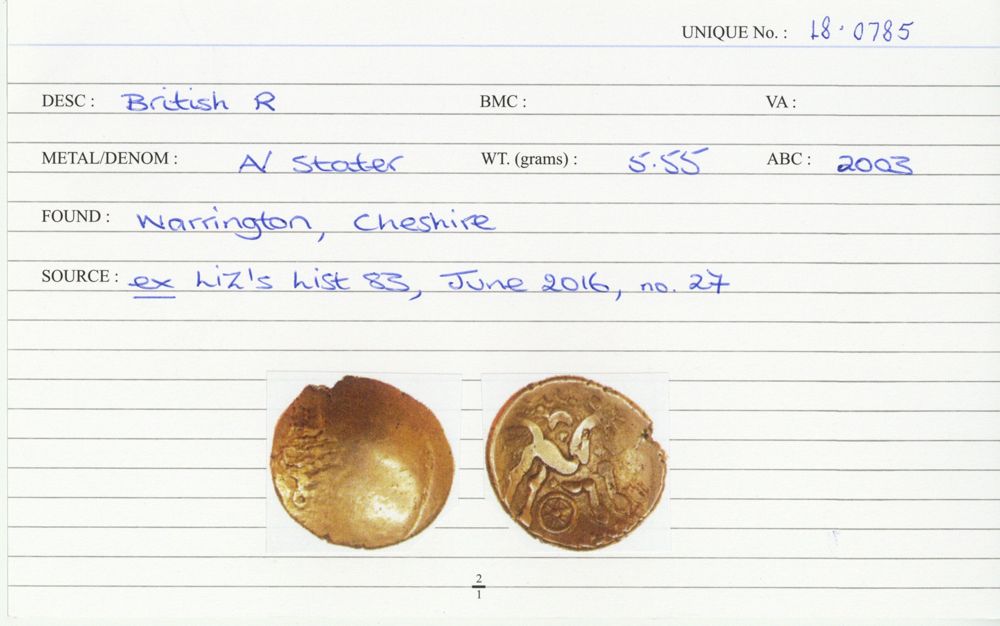 UNIQUE No. : 18.0785
DESC : British R BMC : VA :
METAL/DENOM : A/ Stater WT. (grams) : 5.55 ABC : 2003
FOUND : Warrington, Cheshire
SOURCE : ex Liz's List 83, June 2016, no. 27
2
1